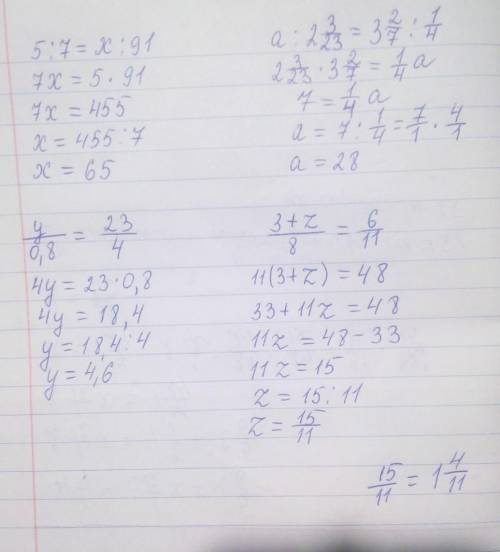 5:7=x:91
7x=5·91
7x=455
x=455:7
x=65
a:2 3/23=3 2/7:1/4
2 3/23·3 2/7=1/4a
7=1/4a
a=7:1/4=7/1·4/1
a=28
y/0,8=23/4
4y=23·0,8
4y=18,4
y=18,4:4
y=4,6
3+z/8=6/11
11(3+z)=48
33+11z=48
11z=48-33
11z=15
z=15:11
z=15/11
15/11=1 4/11